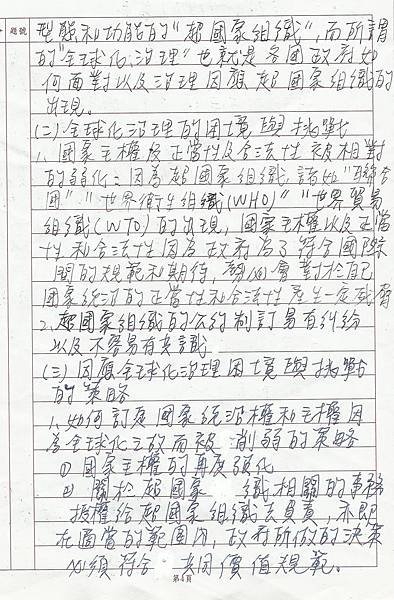 題號
型態和功能的"超國家組織",而所謂
的"全球化治理"也就是各國政府如
何面對以及治理因應超國家組織的
出現。
(二)全球化治理的困境與挑戰
1、國家主權及正當性及合法性被相對
的弱化:因為超國家組織諸如"聯合
國""世界衛生組織(WHO)""世界貿易
組織(WTO)的出現,國家主權以及正當
性和合法性因為政府為了符合國際
間的規範和期待,勢必會對於自己
國家統治的正當性和合法性產生一定
2、超國家組織的公約制訂易有糾紛
以及不容易有共識
(三)因應全球化治理困境與挑戰
的策略
1、如何訂定國家統治權和主權因
為全球化之故而被削弱的策略
① 國家主權的再度強化
② 關於超國家 織相關的事務
授權給超國家組織去負責,亦即
在適當的範圍內,政府所做的決策
必須符合 共同價值規範。
第4頁